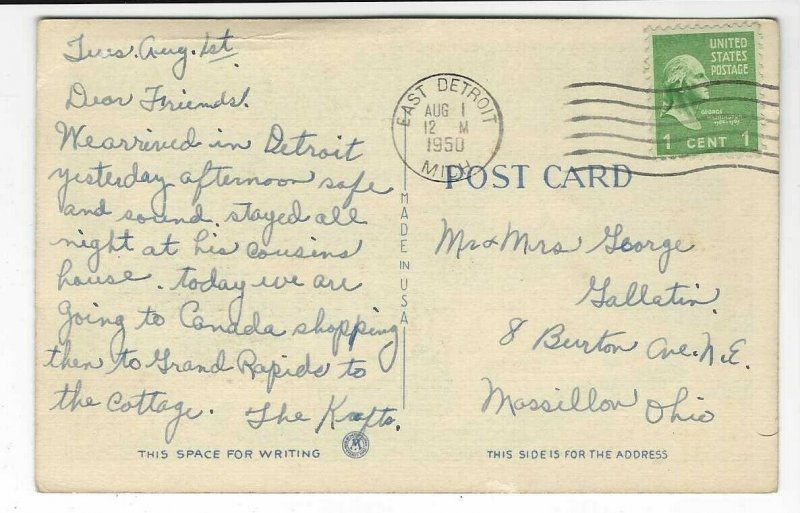 Tues. Aug. 1st.
Dear Friends!
We arrived in Detroit
yesterday afternoon safe
and sound. stayed all
night at his cousins
house. today we are
going to Canada shopping
then to Grand Rapids to
the cottage. The Krafts.
THIS SPACE FOR WRITING
MADE IN USA
EAST DETROIT
AUG 1
12 M
1950
MICH
UNITED
STATES
POSTAGE
GEORGE
1 CENT 1
POST CARD
Mr & Mrs George
Gallatin
8 Burton Ave. N.E.
Massillon Ohio
THIS SIDE IS FOR THE ADDRESS